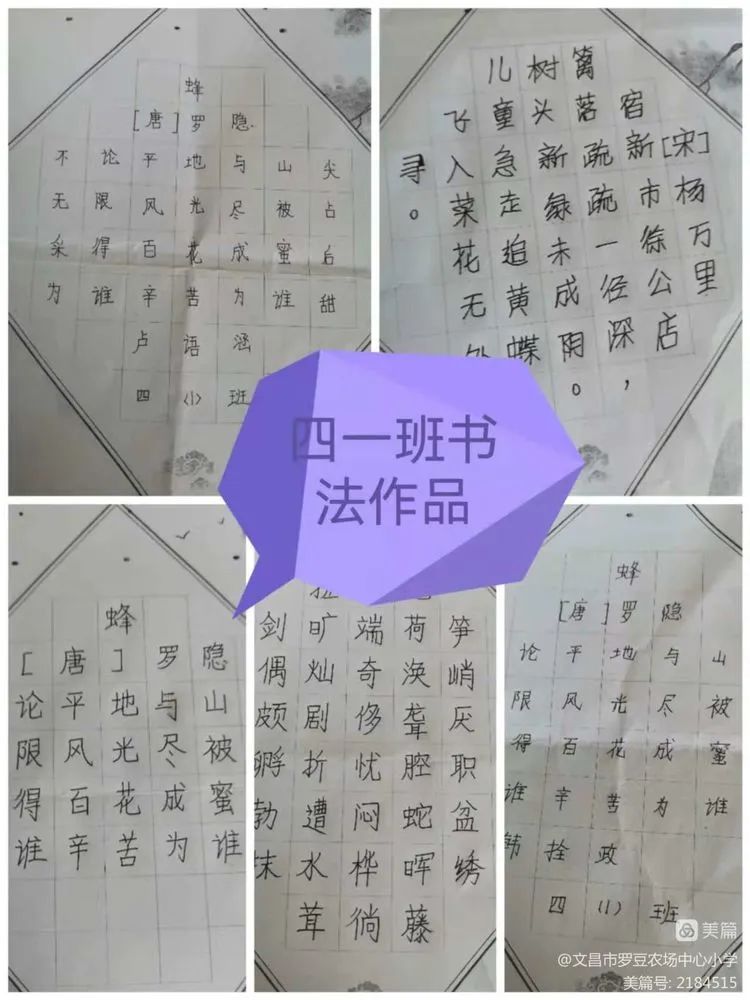 蜂
[唐]罗隐
不论平地与山尖
无限风光尽被占
采得百花成蜜后
为谁辛苦为谁甜
卢语涵
四(1)班
[宋]杨万里
宿新市徐公店
篱落疏疏一径深，
树头新绿未成阴。
儿童急走追黄蝶
飞入菜花无处
寻。
四一班书
法作品
蜂
[唐]罗隐
论平地与山
限风光尽被
得百花成蜜
谁辛苦为谁
剑旷端荷笋
偶灿奇涣峭
颇剧侈聋厌
孵折忧腔职
勃遭闷蛇盆
抹水桦晖绣
茸徜藤
蜂
[唐]罗隐
论平地与山
限风光尽被
得百花成蜜
谁辛苦为谁
拴政
四(1)班
美篇
@文昌市罗豆农场中心小学
美篇号: 2184515